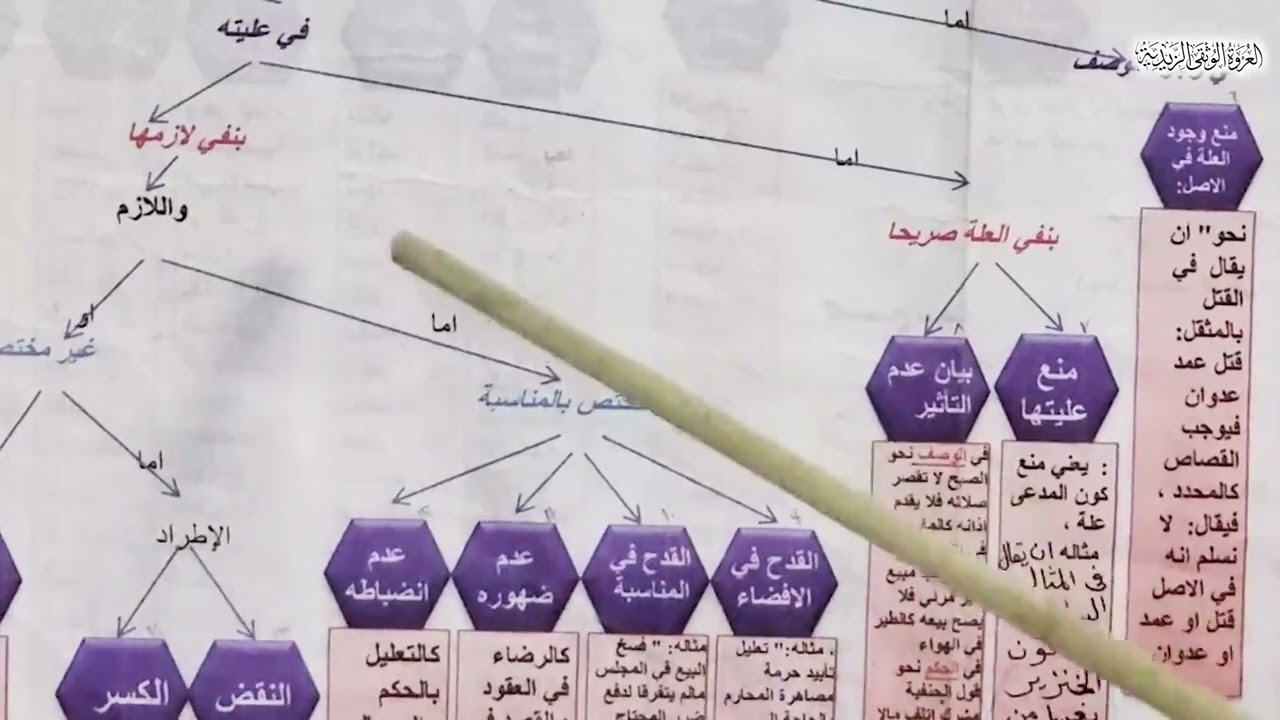 العروة الوثقى الزيدية
اما
في عليته
وصف
منع وجود
العلة في
الاصل:
نحو" ان
يقال في
القتل
بالمثقل:
قتل عمد
عدوان
فيوجب
القصاص
كالمحدد ،
فيقال: لا
نسلم انه
في الاصل
قتل او عمد
او عدوان
اما
بنفي العلة صريحا
منع
عليتها
: يعني منع
كون المدعى
علة ،
مثاله ان يقال
في
الخنزير
بيان عدم
التأثير
في الوصف نحو
الصبح لا تقصر
صلاته فلا يقدم
اذانه
مبيع
مرئي فلا
يصح بيعه كالطير
في الهواء
في الحكم نحو
قول الحنفية
بنفي لازمها
واللازم
اما
بالمناسبة
القدح في
الافضاء
، مثاله:" تعليل
تأبيد حرمة
مصاهرة المحارم
القدح في
المناسبة
مثاله: " فسخ
البيع في المجلس
مالم يتفرقا لدفع
عدم
ضهوره
كالرضاء
في العقود
عدم
انضباطه
كالتعليل
بالحكم
او
غير
اما
الإطراد
النقض
الكسر